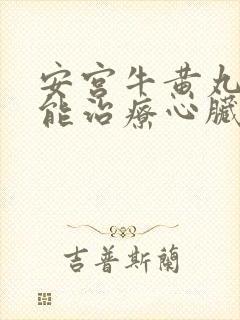 安宮牛黃丸
能治療心臟
吉普斯蘭